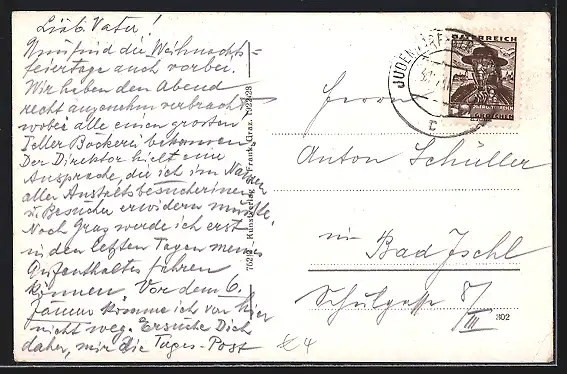 Lieb. Vater!
Nun sind die Weihnachts=
feiertage auch vorbei.
Wir haben den Abend
recht angenehm verbracht
wobei alle einen grossen
Teller Bäckerei bekamen.
Der Direktor hielt eine
Ansprache, die ich im Namen
aller Anstaltsbesucherinnen
u. Besucher erwidern musste.
Nach Graz werde ich erst
in den letzten Tagen meines
Aufenthaltes fahren
können. Vor dem 6.
Jänner komme ich von hier
nicht weg. Ersuche Dich
daher, mir die Tages-Post
7022 Kunstverlag Frank, Graz.
JUDENDORF
ÖSTERREICH
Herrn
Anton Schüller
in Bad Ischl
Schulgasse 8/
III
302